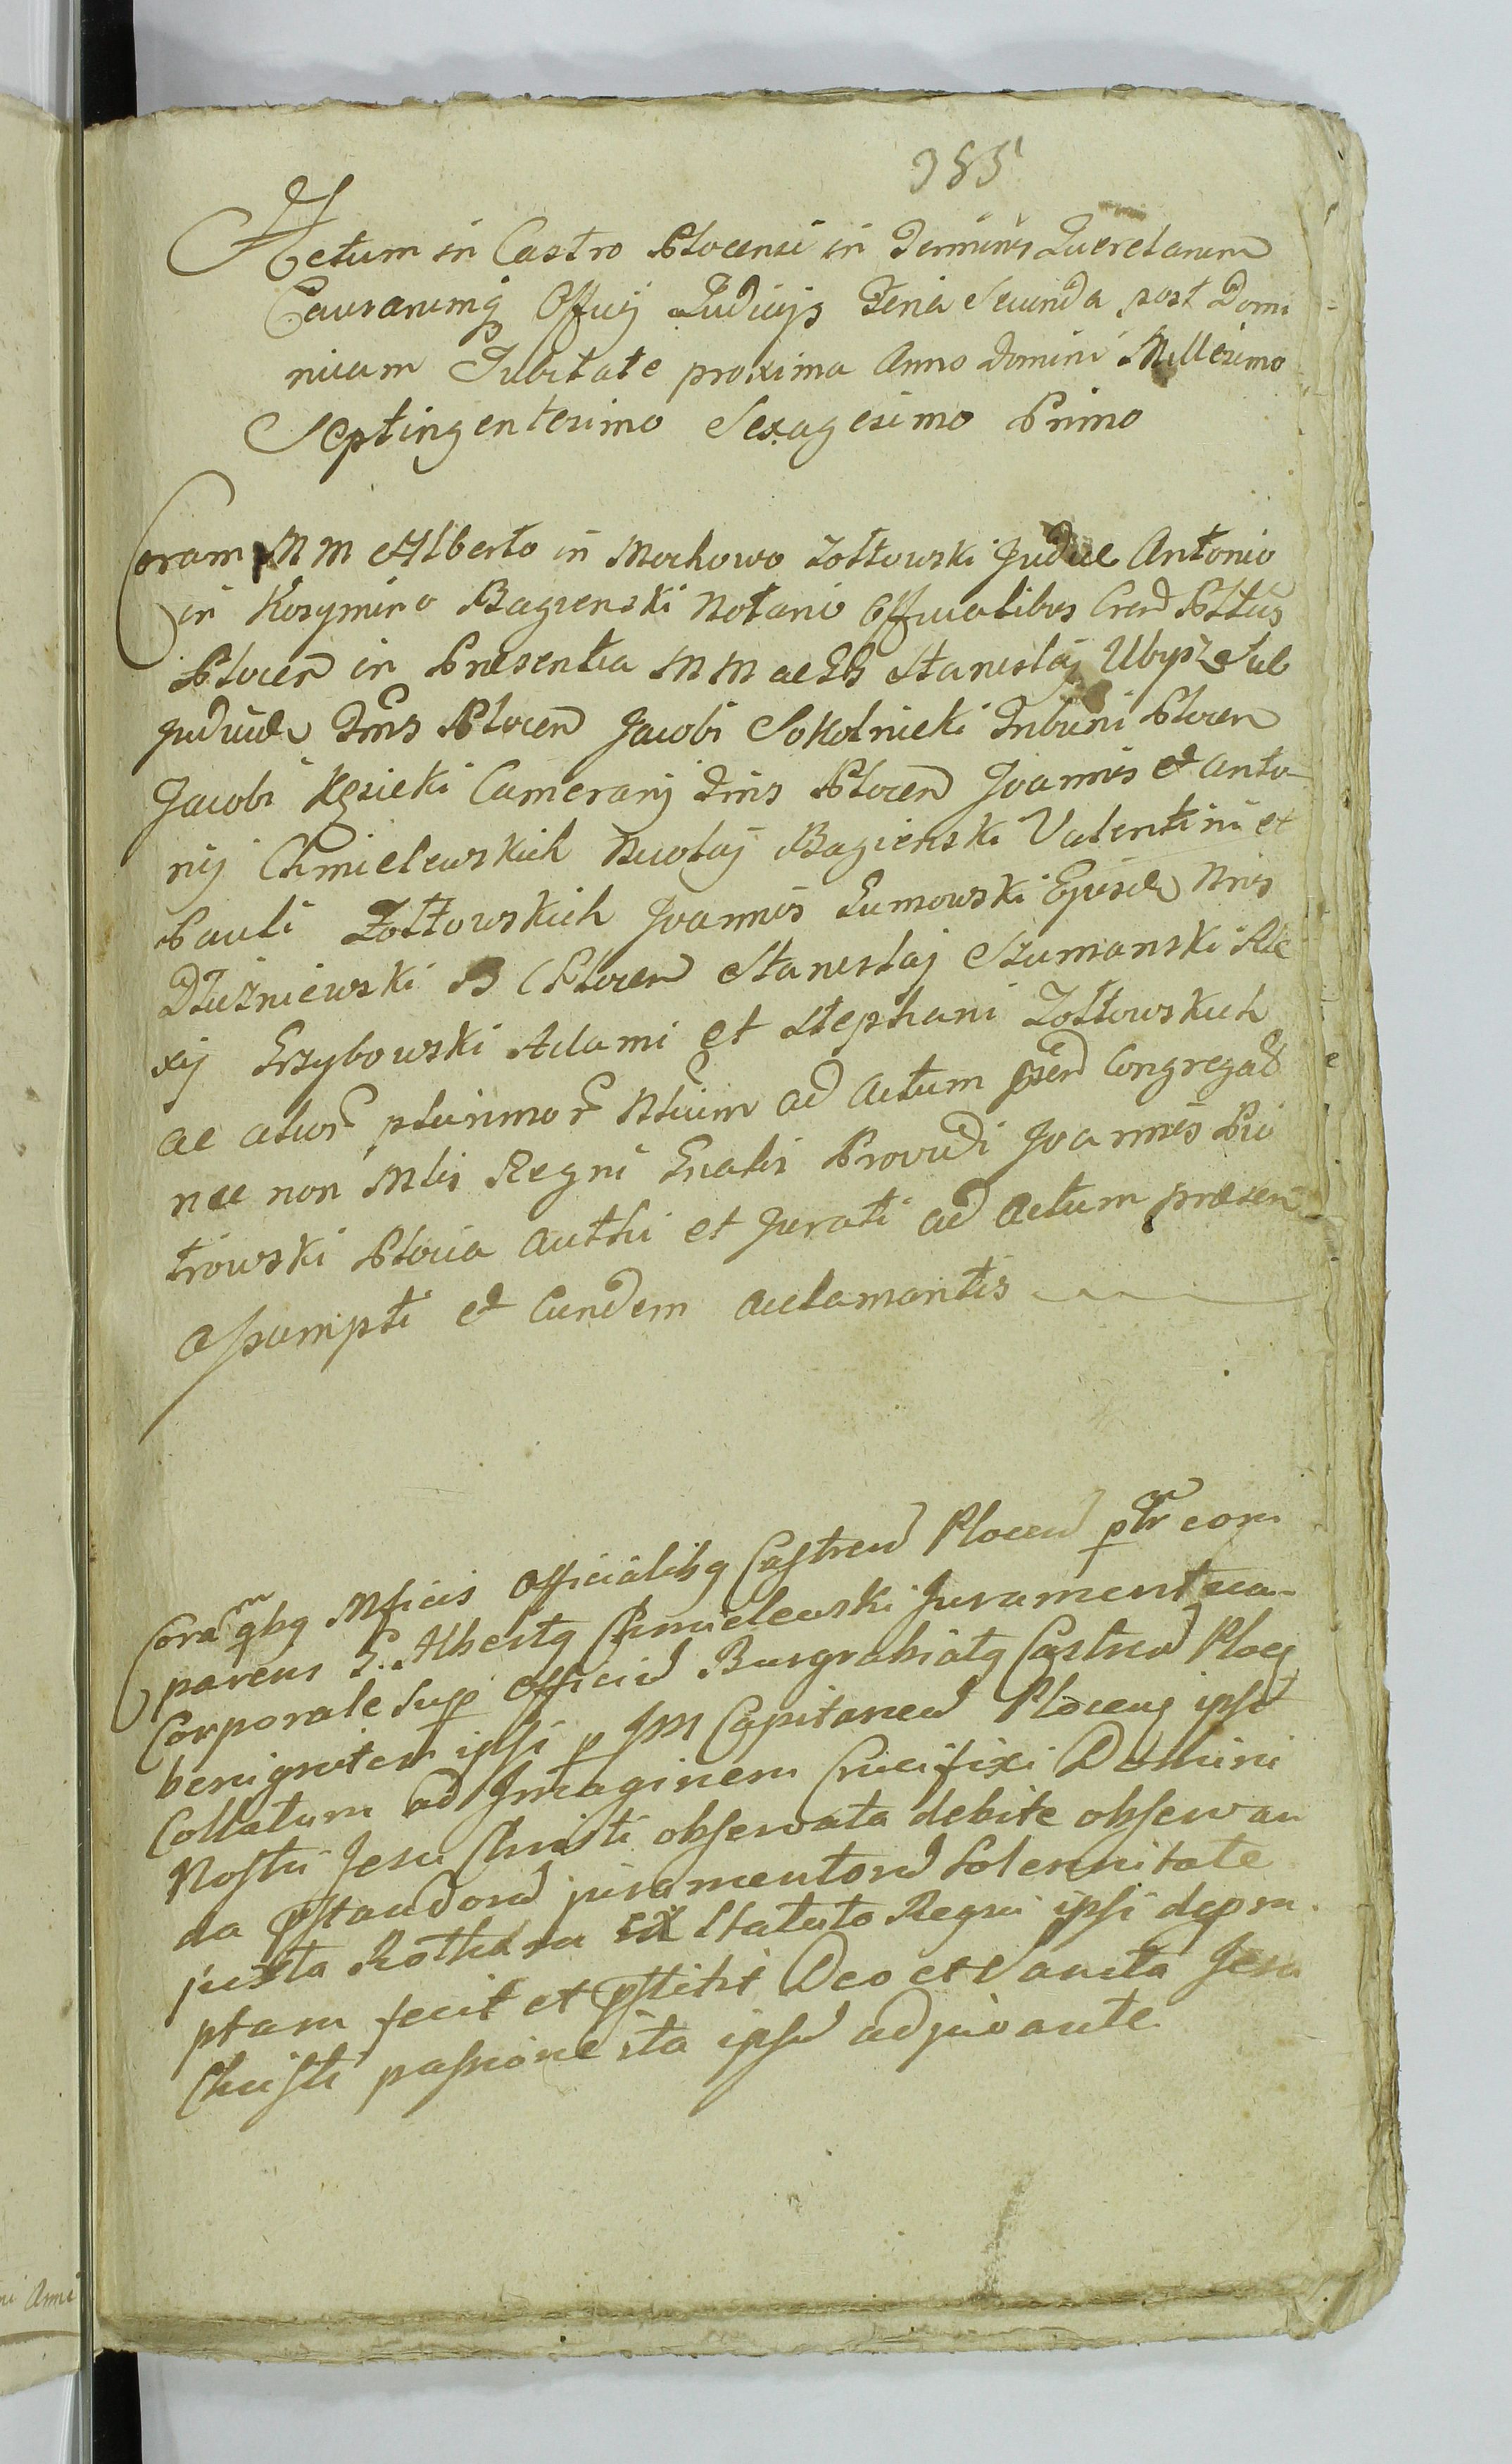 385
Actum in Castro Plocensi in Terminis Querelarum
Causarumq Officij Judicijs Feria Secunda post Domi
nicam Jubilate proxima Anno Domini Millesimo
Septingentesimo Sexagesimo Primo
Coram MM Alberto in Mochowo Zołtowski Judice Antonio
in Kosymino Bagienski Notario Officialibus Cren Plttus
Plocen in Presentia MM ac GG Stanislaj Ubysz Sub
judicis Trris Plocen Jacobi Sokolnicki Tribuni Plocen
Jacobi Kęsicki Camerarij Trris Plocen Joannis et Anto
nij Chmielewskich Nicolaj Bagienski Valentini et
Pauli Zołtowskich Joannis Sumowski Ejusde Nris
Dłużniewski B C Plocen Stanislaj Szumanski Ale
xij Grzybowski Adami et Stephani Zołtowskich
ac alior plurimor Nblium ad Actum psen Congregat
nec non Mlis Regni Gnalis Providi Joannis Pio
trowski Plocia Authi et Jurati ad Actum præsen
assumpti et Eundem acclamantis
Cora qbq Mficis Officialibq Castren Plocen ptr com
parens G. Albertq Chmielewski Jurament sua
Corporale Sup Officiu Burgrabiatq Castren Ploc
benigniter ipsi p JM Capitaneu Plocens ipsi
Collatum ad Imaginem Crucifixi Domini
Nostri Jesu Christi observata debite observan
da pstandoru juramentoru Solennitate
juxta Rotham ex Statuto Regni ipsi deprom
ptam fecit et pstitit Deo et Sancta Jesu
Christi passione ita ipsu adjuvante